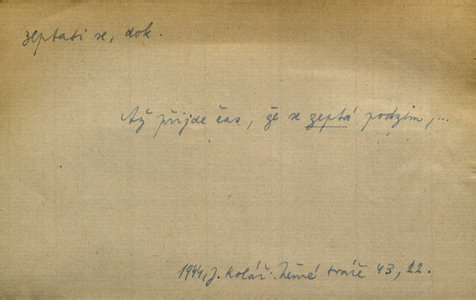 zeptati se, dok.
Až přijde čas, že se zeptá podzim,...
1944, J. Kolář. Němé tváře 43, 22.